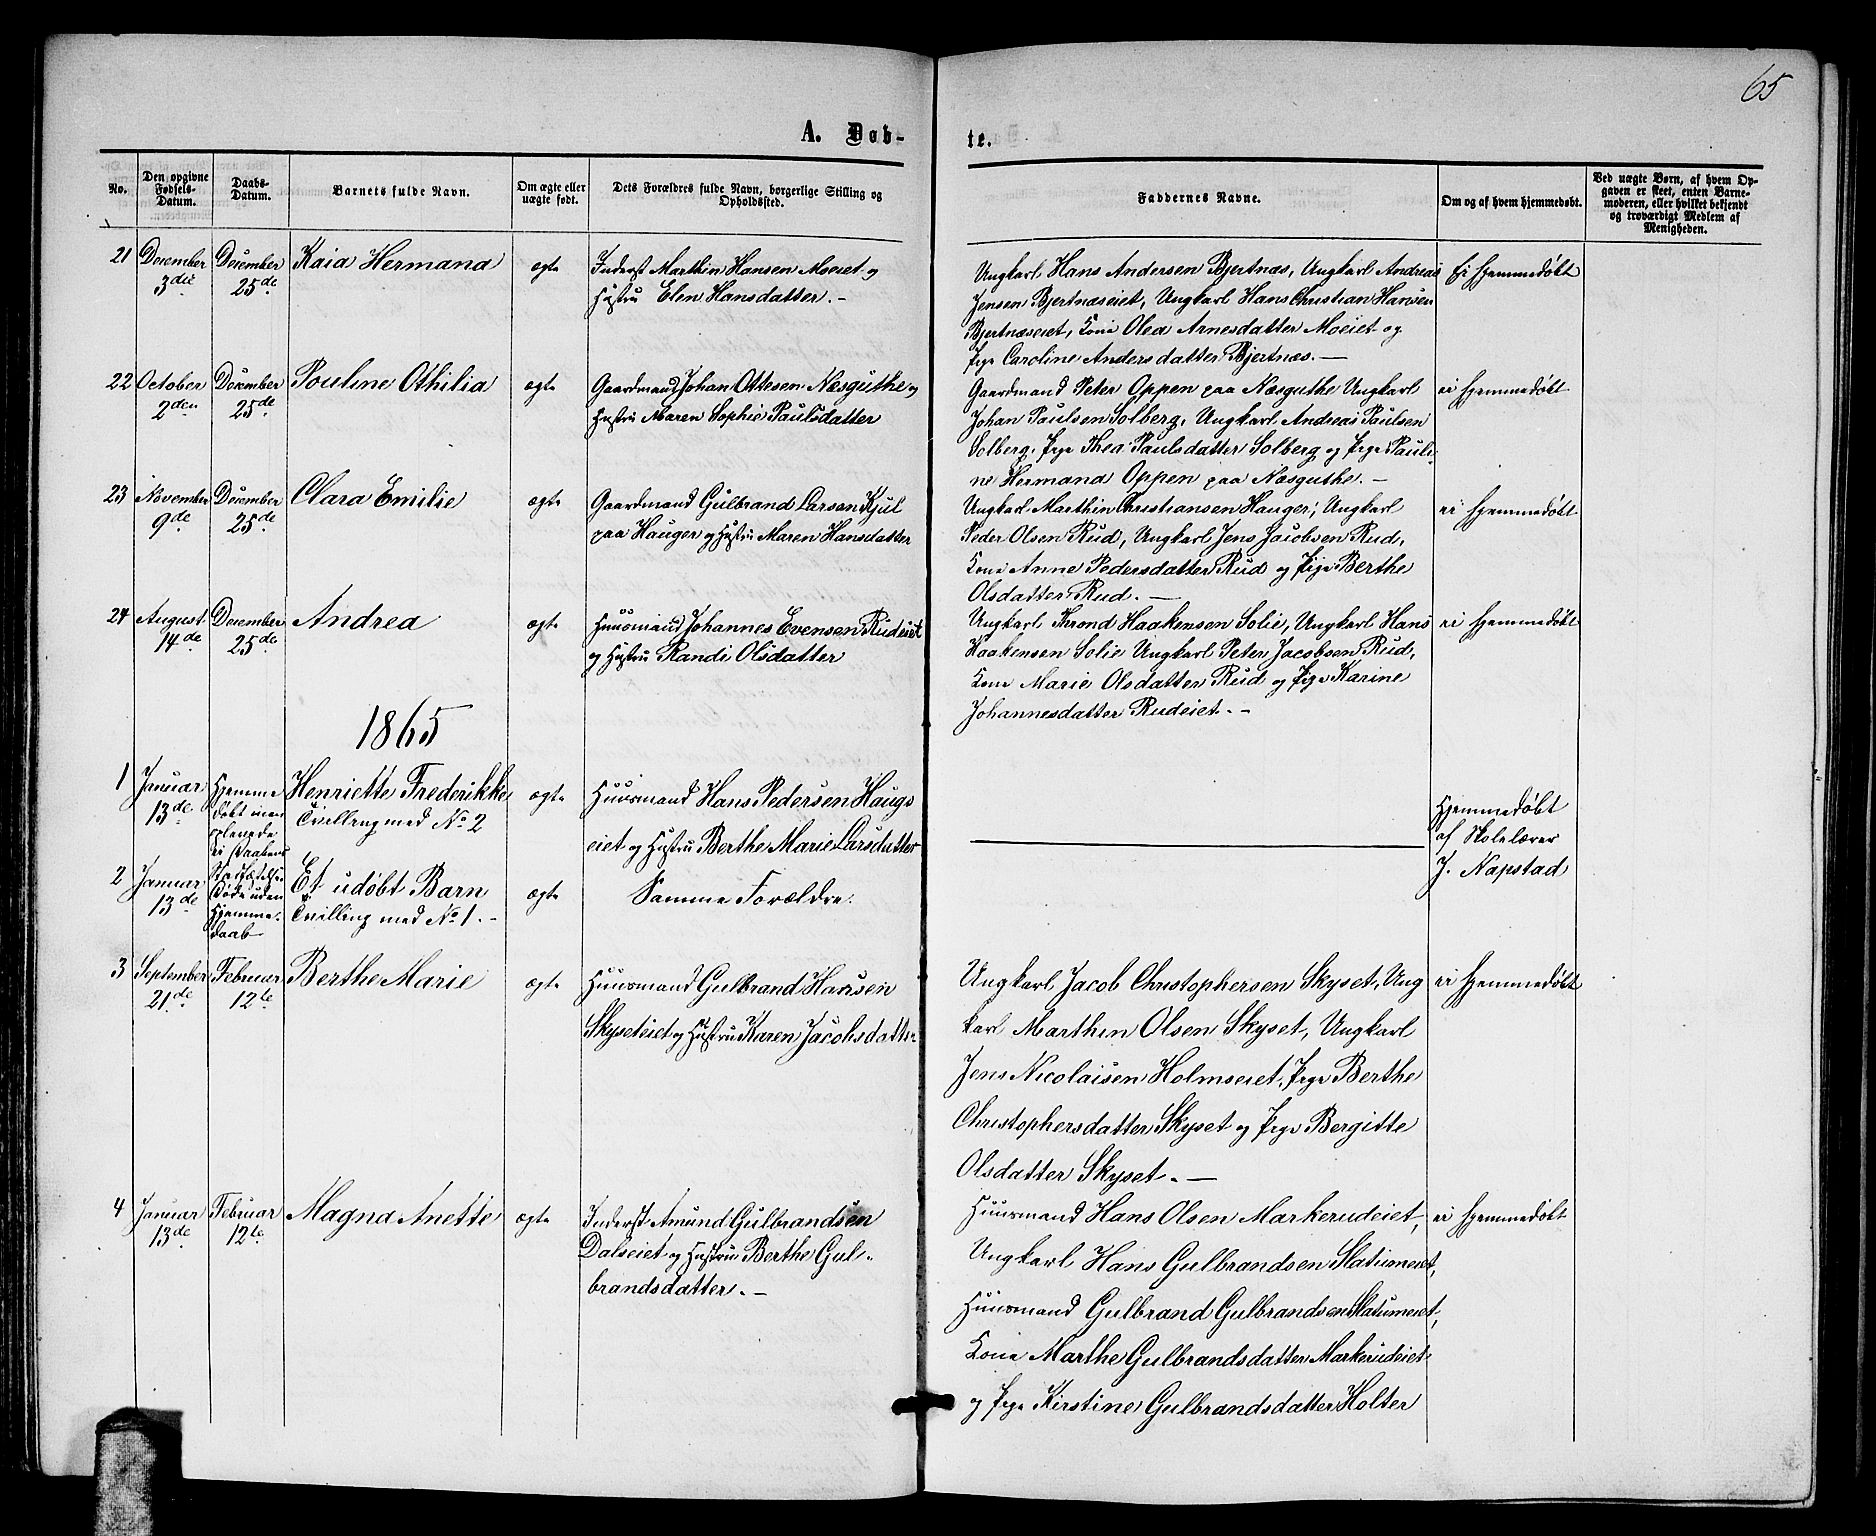 65
A. Døb-
te.
No.
Den opgivne Fødsels-Datum.
Daabs-Datum.
Barnets fulde Navn.
Om ægte eller uægte født.
Dets Forældres fulde Navn, borgerlige Stilling og Opholdssted.
Faddernes Navne.
Om og af hvem hjemmedøbt.
Ved uægte Børn, af hvem Opgaven er skeet, enten Barnemoderen, eller hvilket bekjendt og troværdigt Medlem af Menigheden.
21 December 3die December 25de Kaia Hermana ægte
Inderst Marthin Hansen Moeiet og
Hustru Elen Hansdatter. -
Ungkarl Hans Andersen Bjertnæs, Ungkarl Andreas
Jensen Bjertnæseiet, Ungkarl Hans Christian Hansen
Bjertnæseiet, Kone Olea Arnesdatter Moeiet og
Pige Caroline Andersdatter Bjertnæs. -
Ei hjemmedøbt
22 October 2den December 25de Pouline Othilia ægte
Gaardmand Johan Ottesen Næsguthe og
Hustru Maren Sophie Paulsdatter
Gaardmand Peter Oppen paa Næsguthe Ungkarl
Johan Paulsen Solberg, Ungkarl Andreas Paulsen
Solberg, Pige Thea Paulsdatter Solberg og Pige Pauli-
ne Hermand Oppen paa Næsguthe. -
ei hjemmedøbt
23 November 9de December 25de Clara Emilie ægte
Gaardmand Gulbrand Larsen Kjul
paa Hauger og Hustru Maren Hansdatter
Ungkarl Marthin Christiansen Hauger, Ungkarl
Peder Olsen Rud, Ungkarl Jens Jacobsen Rud,
Kone Anne Pedersdatter Rud og Pige Berthe
Olsdatter Rud. -
ei hjemmedøbt
24 August 14de December 25de Andrea ægte
Huusmand Johannes Evensen Rudeiet
og Hustru Randi Olsdatter
Ungkarl Thrond Haakensen Solie, Ungkarl Hans
Haakensen Solie Ungkarl Peter Jacobsen Rud,
Kone Marie Olsdatter Rud og Pige Karine
Johannesdatter Rudeiet. -
ei hjemmedøbt
1865
1 Januar 13de
Hjemme
døbt men
Henriette Frederikke
Tvilling med No 2
ægte
Huusmand Hans Pedersen Haugs
eiet og Hustru Berthe Marie Larsdatter
Hjemmedøbt
af Skolelærer
J. Napstad
2 Januar 13de
Døde uden
Hjemme-
daab
Et udøbt Barn
Tvilling med No 1. -
ægte
Samme Forældre.
3 September 21de Februar 12te Berthe Marie ægte
Huusmand Gulbrand Hansen
Skyseteiet og Hustru Karen Jacobsdatter
Ungkarl Jacob Christophersen Skyset, Ung
karl Marthin Olsen Skyset, Ungkarl
Jens Nicolaisen Holmseiet, Pige Berthe
Christophersdatter Skyset og Pige Bergitte
Olsdatter Skyset. -
ei hjemmedøbt
4 Januar 13de Februar 12te Magna Anette ægte
Inderst Amund Gulbrandsen
Dalseiet og Hustru Berthe Gul-
brandsdatter. -
Huusmand Hans Olsen Markerudeiet,
Ungkarl Hans Gulbrandsen Slatumeiet,
Huusmand Gulbrand Gulbrandsen Slatumeiet,
Kone Marthe Gulbrandsdatter Markerudeiet
og Pige Kirstine Gulbrandsdatter Holter
ei hjemmedøbt